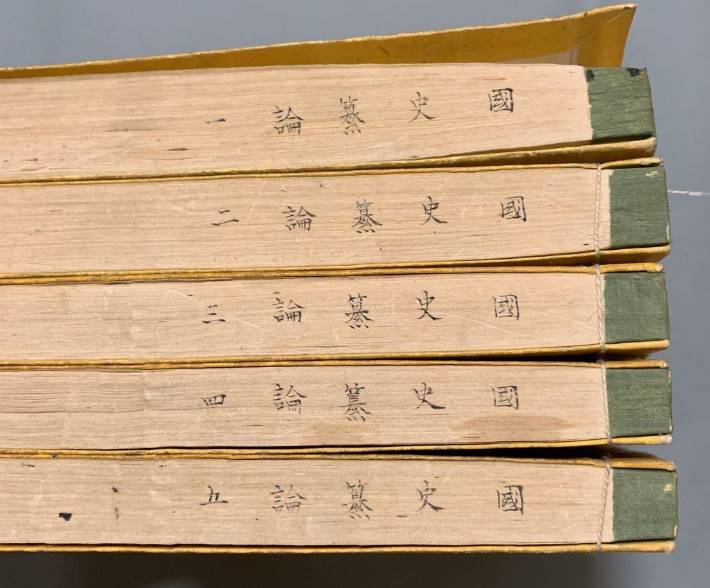 國史纂論一
國史纂論二
國史纂論三
國史纂論四
國史纂論五